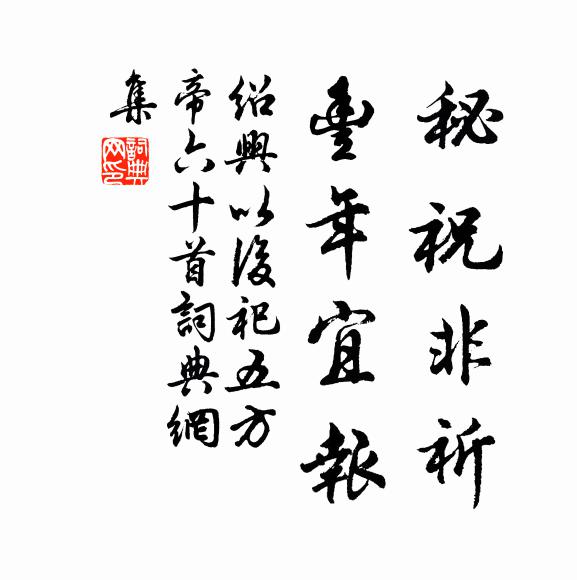 秘祝非祈
豐年宜報
紹興以後祀五方
帝六十首詞典網
集
詞典网印